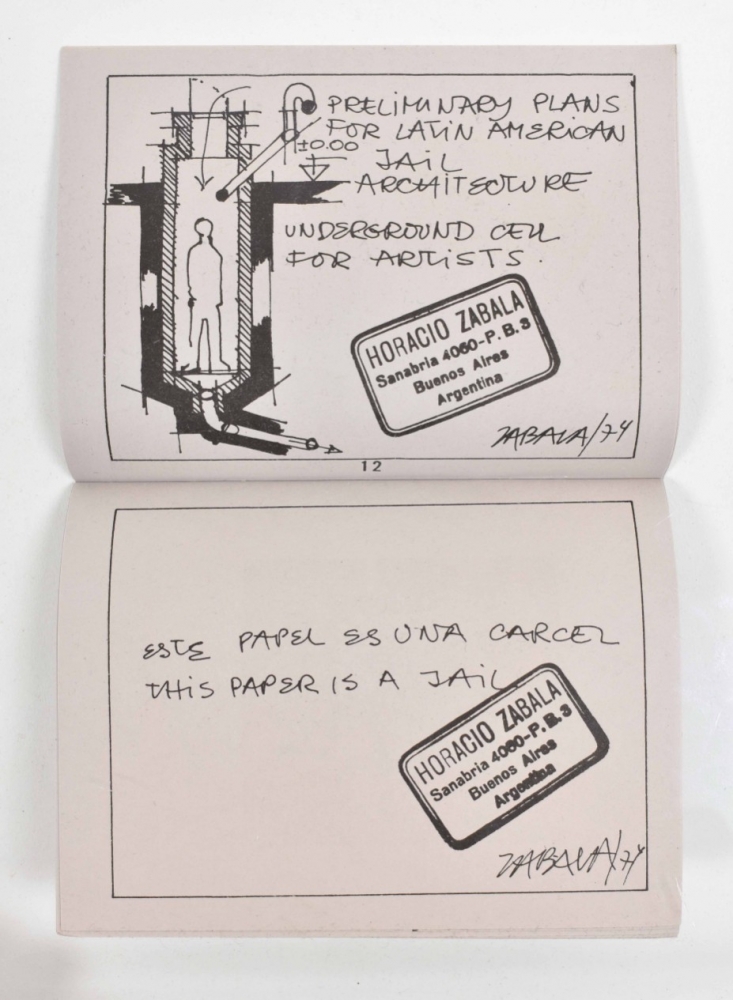 PRELIMINARY PLANS
FOR LATIN AMERICAN
±0.00 JAIL
ARCHITECTURE
UNDERGROUND CELL
FOR ARTISTS.
HORACIO ZABALA
Sanabria 4060-P.B.3
Buenos Aires
Argentina
ZABALA/74
12
ESTE PAPEL ES UNA CARCEL
THIS PAPER IS A JAIL
HORACIO ZABALA
Sanabria 4060-P.B.3
Buenos Aires
Argentina
ZABALA/74